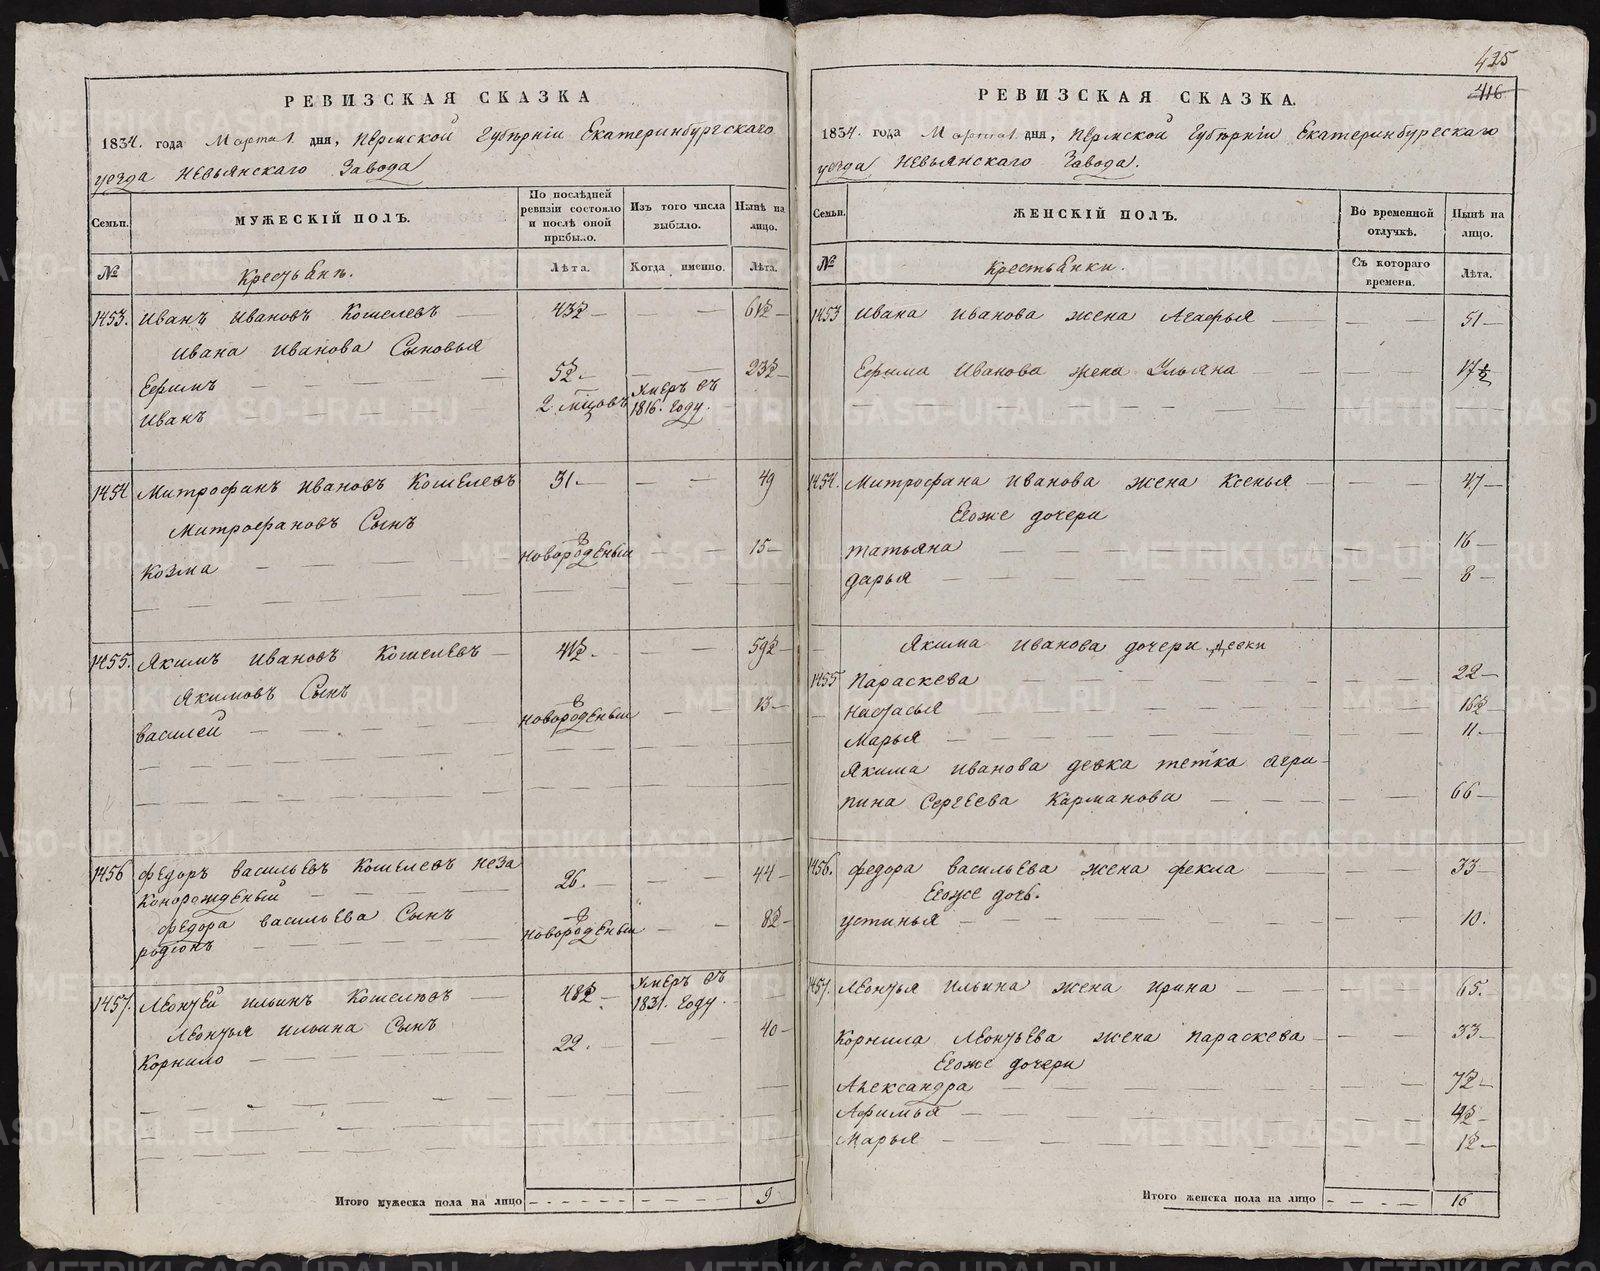 РЕВИЗСКАЯ СКАЗКА
1834. года Марта 1. дня, Пермской Губѣрніи Екатеринбургскаго
уезда Невьянскаго Завода
Семьи. МУЖЕСКІЙ ПОЛЪ. По послѣдней ревизіи состояло и послѣ оной прибыло. Изъ того числа выбыло. Нынѣ на лицо.
№ Крестьянъ. Лѣта. Когда именно. Лѣта.
1453. Иванъ Ивановъ Кошелевъ — 43½ — — — 61½ —
Ивана Иванова Сыновья
Ефимъ — — — 5½ — — — 23½ —
Иванъ — — — 2 мцовъ Умеръ въ 1816. году.
1454 Митрофанъ Ивановъ Кошелевъ 31. — — — 49
Митрофановъ Сынъ
Козма — — — новорожденный — — 15 —
1455. Якимъ Ивановъ Кошелевъ — 41½. — — — 59½ —
Якимовъ Сынъ
Василей — — — новорожденный — — 13 —
1456 Федоръ Васильевъ Кошелевъ неза
конорожденный — 26. — — — 44 —
Федора Васильева Сынъ
Родіонъ — — — новорожденный — — 8½ —
1457. Леонтей Ильинъ Кошелевъ — 48½ — Умеръ въ 1831. году.
Леонтья Ильина Сынъ
Корнило — — — 22. — — — 40 —
Итого мужеска пола на лицо — — — — — 9
425
416
РЕВИЗСКАЯ СКАЗКА.
1834. года Марта 1. дня, Пермской Губѣрніи Екатеринбургскаго
уезда Невьянскаго Завода.
Семьи. ЖЕНСКІЙ ПОЛЪ. Во временной отлучкѣ. Нынѣ на лицо.
№ Крестьянки. Съ котораго времени. Лѣта.
1453 Ивана Иванова жена Агафья — — — 51 —
Ефима Иванова жена Ульяна — — — 17½
1454. Митрофана Иванова жена Ксенья — — — 47 —
Егоже дочери
Татьяна — — — 16 —
Дарья — — — 8 —
Якима Иванова дочери девки
1455 Параскева — — — 22 —
Настасья — — — 16½ —
Марья — — — 11. —
Якима Иванова девка тетка Агри-
пина Сергеева Карманова — — — 66 —
1456. Федора Васильева жена Фекла — — — 33 —
Егоже дочь.
Устинья — — — 10.
1457. Леонтья Ильина жена Ирина — — — 65.
Корнила Леонтьева жена Параскева — — — 33 —
Егоже дочери
Александра — — — 7½ —
Афимья — — — 4½ —
Марья — — — 1½ —
Итого женска пола на лицо — — — — 16
METRIKI.GASO-URAL.RU